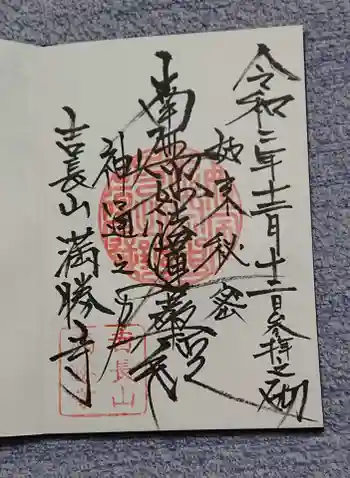 令和二年十二月十二日参拝之砌
如来秘密
南無妙法蓮華経
神通之力
吉長山満勝寺
吉長山